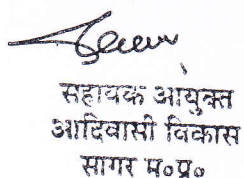 सहायक आयुक्त
आदिवासी विकास
सागर म०प्र०